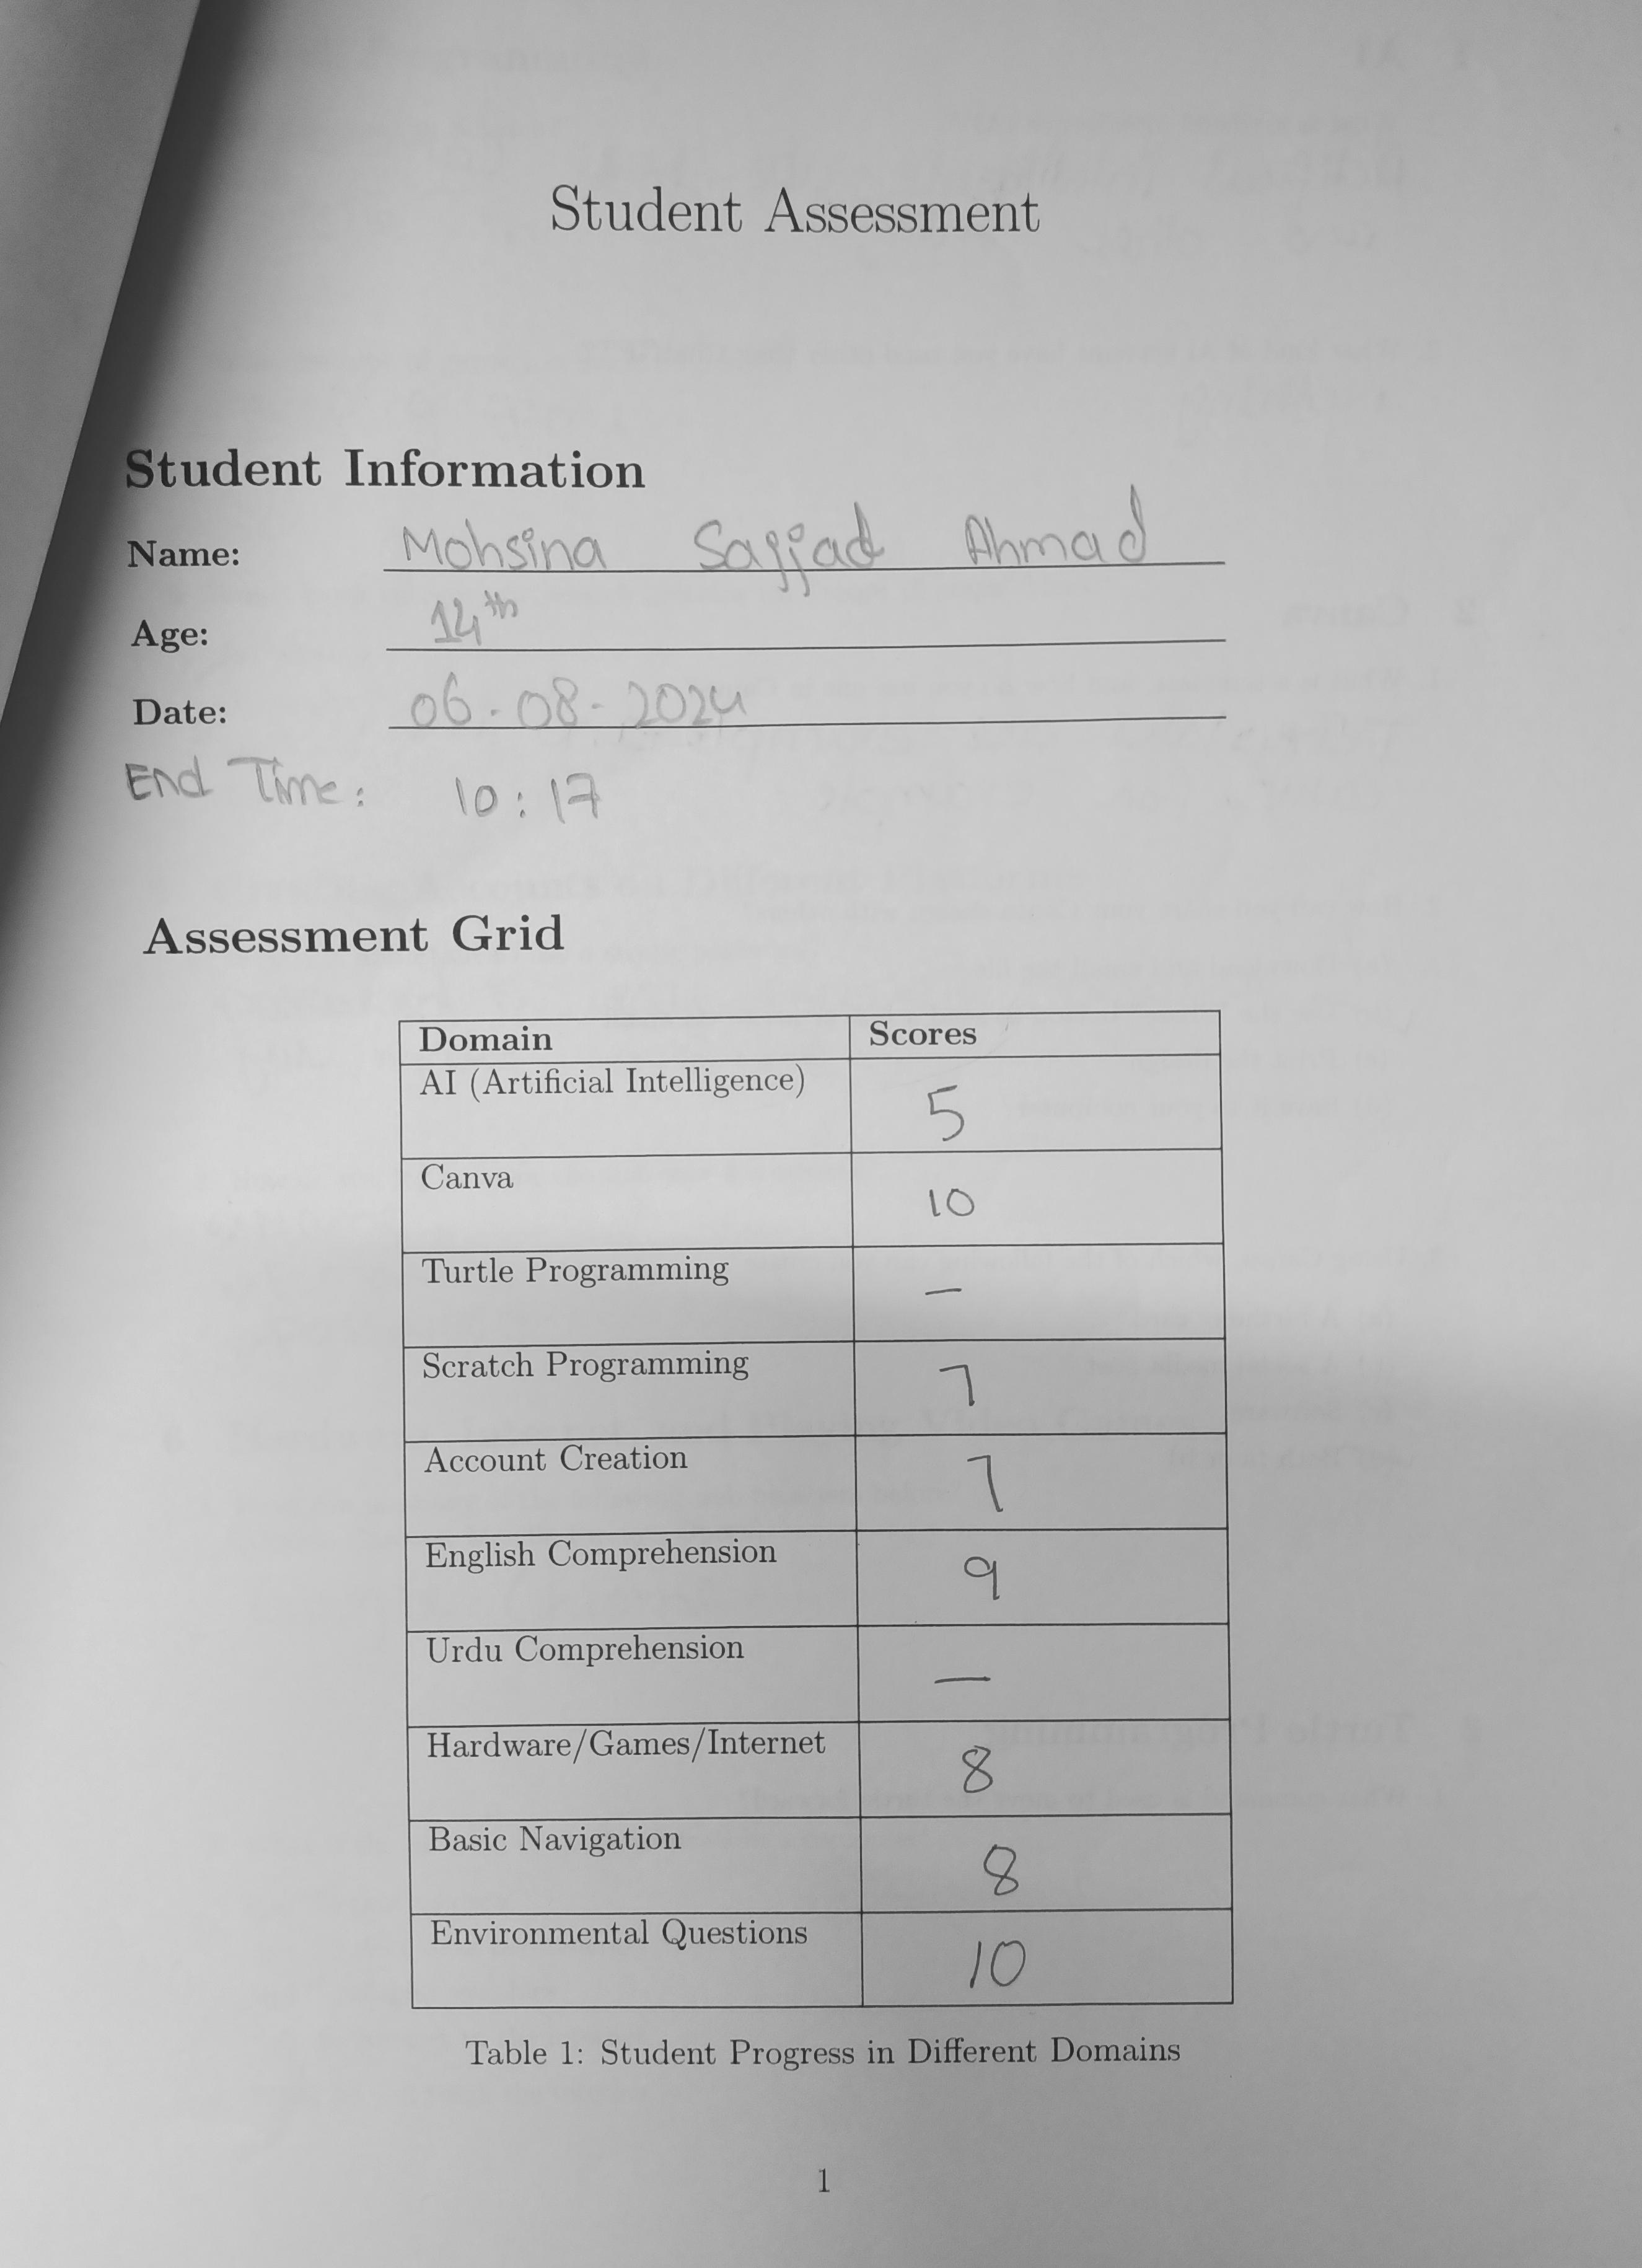 Student Assessment
Student Information
Name: Mohsina Sajjad Ahmad
Age: 14th
Date: 06-08-2024
End Time: 10:17
Assessment Grid
Domain Scores
AI (Artificial Intelligence) 5
Canva 10
Turtle Programming —
Scratch Programming 7
Account Creation 7
English Comprehension 9
Urdu Comprehension —
Hardware/Games/Internet 8
Basic Navigation 8
Environmental Questions 10
Table 1: Student Progress in Different Domains
1